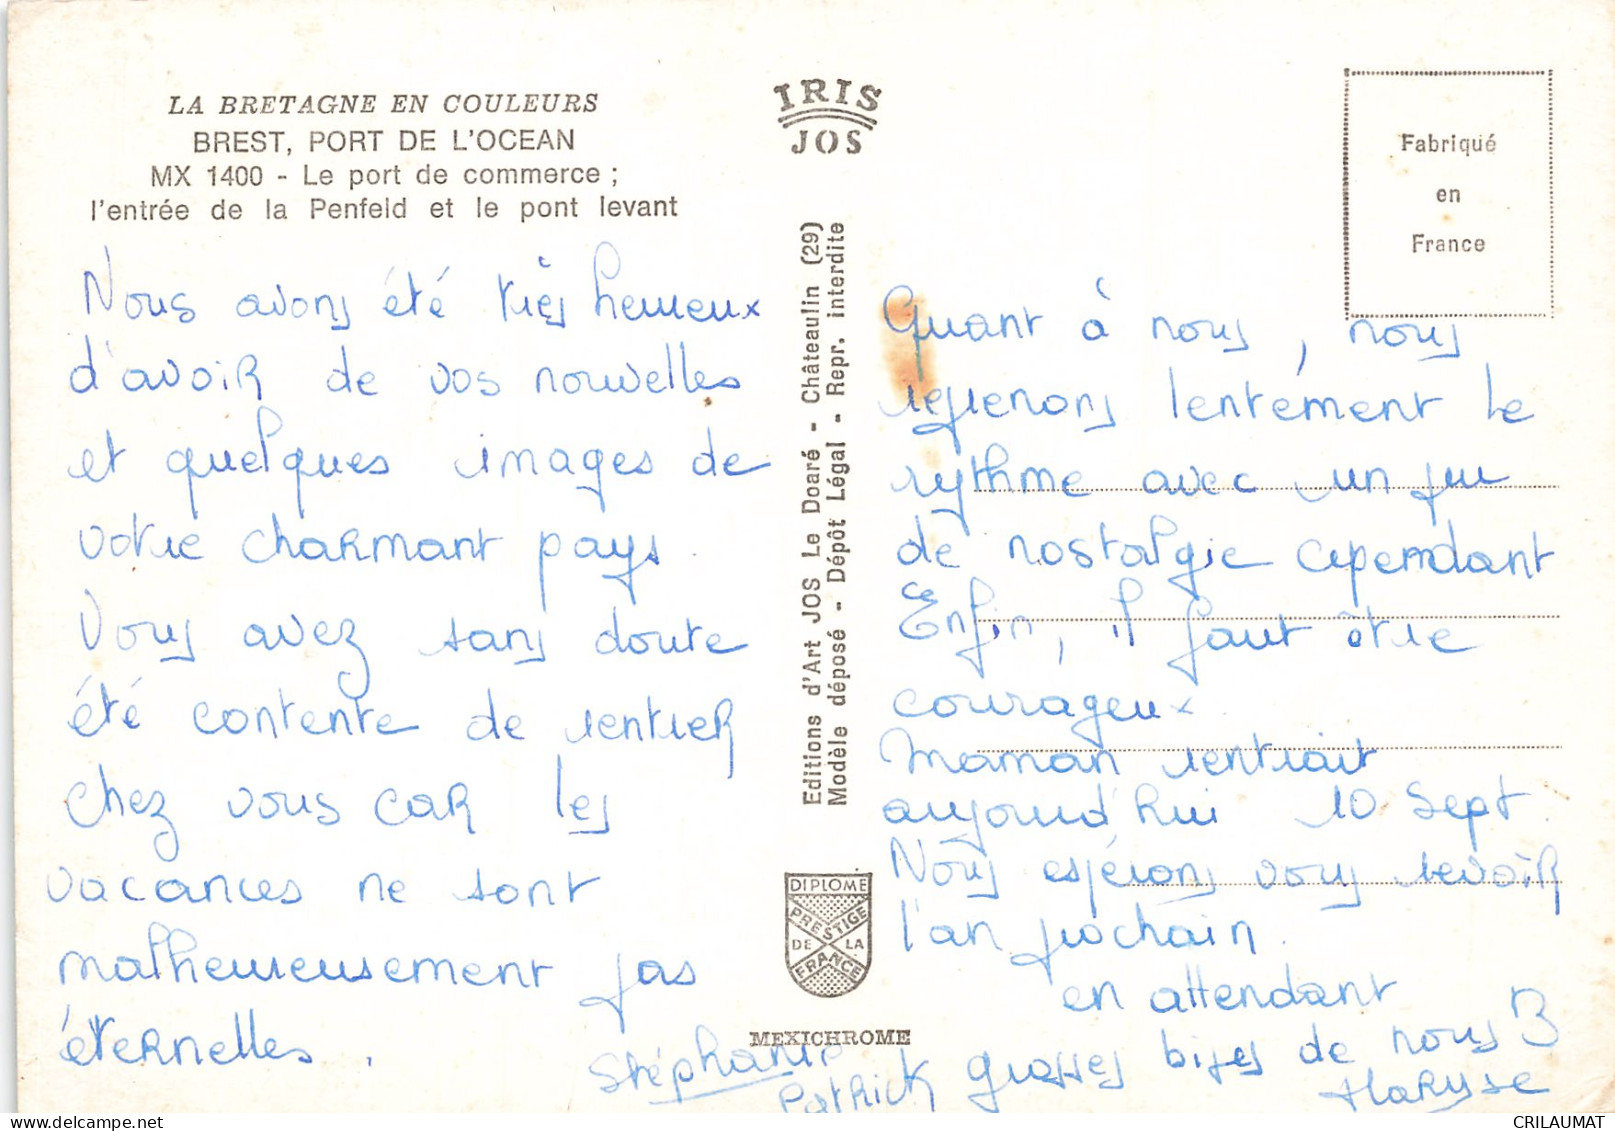 LA BRETAGNE EN COULEURS
BREST, PORT DE L'OCEAN
MX 1400 - Le port de commerce ;
l'entrée de la Penfeld et le pont levant
Nous avons été très heureux
d'avoir de vos nouvelles
et quelques images de
votre charmant pays.
Vous avez sans doute
été contente de rentrer
chez vous car les
vacances ne sont
malheureusement pas
éternelles.
IRIS
JOS
Editions d'Art JOS Le Doaré - Châteaulin (29)
Modèle déposé - Dépôt Légal - Repr. interdite
DIPLOME
PRESTIGE
DE LA
FRANCE
MEXICHROME
Fabriqué
en
France
Quant à nous, nous
reprenons lentement le
rythme avec un peu
de nostalgie cependant
Enfin, il faut être
courageux.
Maman rentrait
aujourd'hui 10 Sept.
Nous espérons vous revoir
l'an prochain.
en attendant
grosses bises de nous 3
Stéphanie
Patrick
Maryse
CRILAUMAT